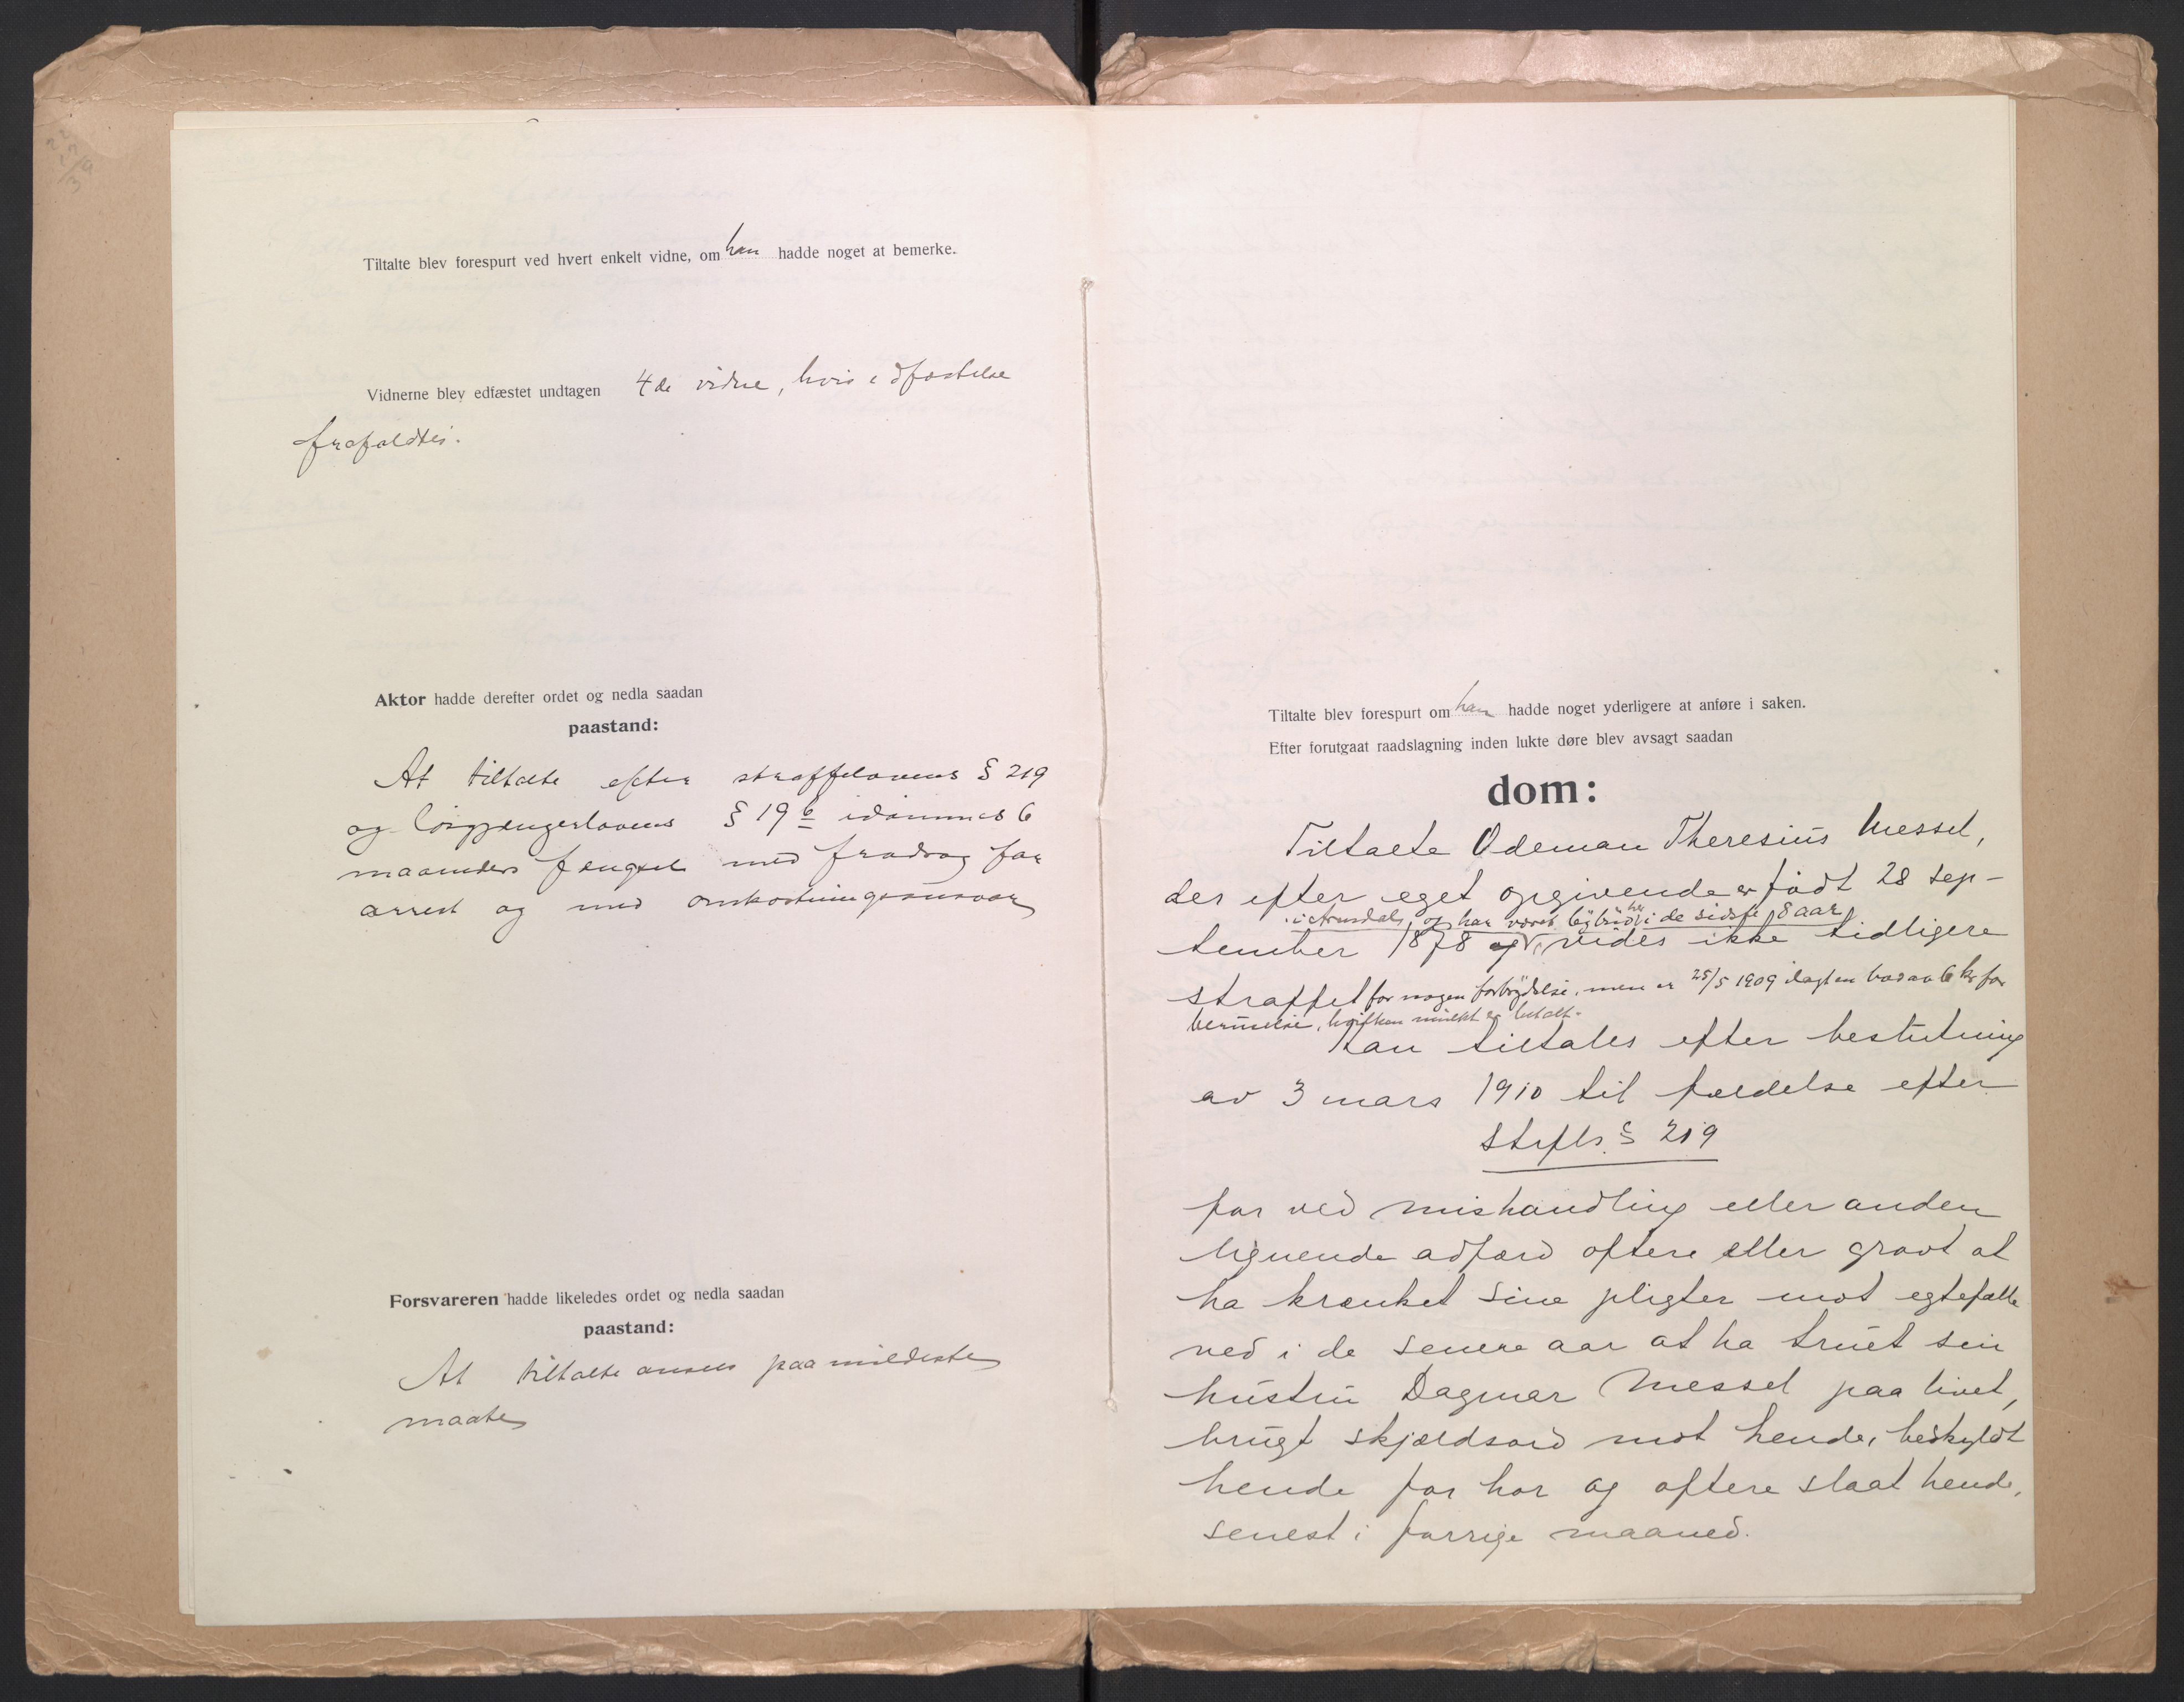 Tiltalte blev forespurt ved hvert enkelt vidne, om han hadde noget at bemerke.
Vidnerne blev edfæstet undtagen 4de vidne, hvis edfæstelse
frafaldtes.
Aktor hadde derefter ordet og nedla saadan
paastand:
At tiltalte efter straffelovens § 219
og løsgjængerlovens § 19 6 idømmes 6
maaneders fængsel med fradrag for
arrest og med omkostningsansvar
Forsvareren hadde likeledes ordet og nedla saadan
paastand:
At tiltalte ansees paa mildeste
maate
Tiltalte blev forespurt om han hadde noget yderligere at anføre i saken.
Efter forutgaat raadslagning inden lukte døre blev avsagt saadan
dom:
Tiltalte Odeman Theresius Messel,
der efter eget opgivende er født 28 sep-
i Arendal, og har været her i de sidste 8 aar,
tember 1878 og vides ikke tidligere
straffet for nogen forbrydelse, men er 25/5 1909 ilagt en bot av 6 kr for
beruselse, hvilken mulkt er betalt.
Han tiltales efter beslutning
av 3 mars 1910 til fældelse efter
Strfls. § 219
for ved mishandling eller anden
lignende adfærd oftere eller grovt at
ha krænket sine pligter mot egtefælle
ved i de senere aar at ha truet sin
hustru Dagmar Messel paa livet,
brugt skjældsord mot hende, beskyldt
hende for hor og oftere slaat hende,
senest i forrige maaned.